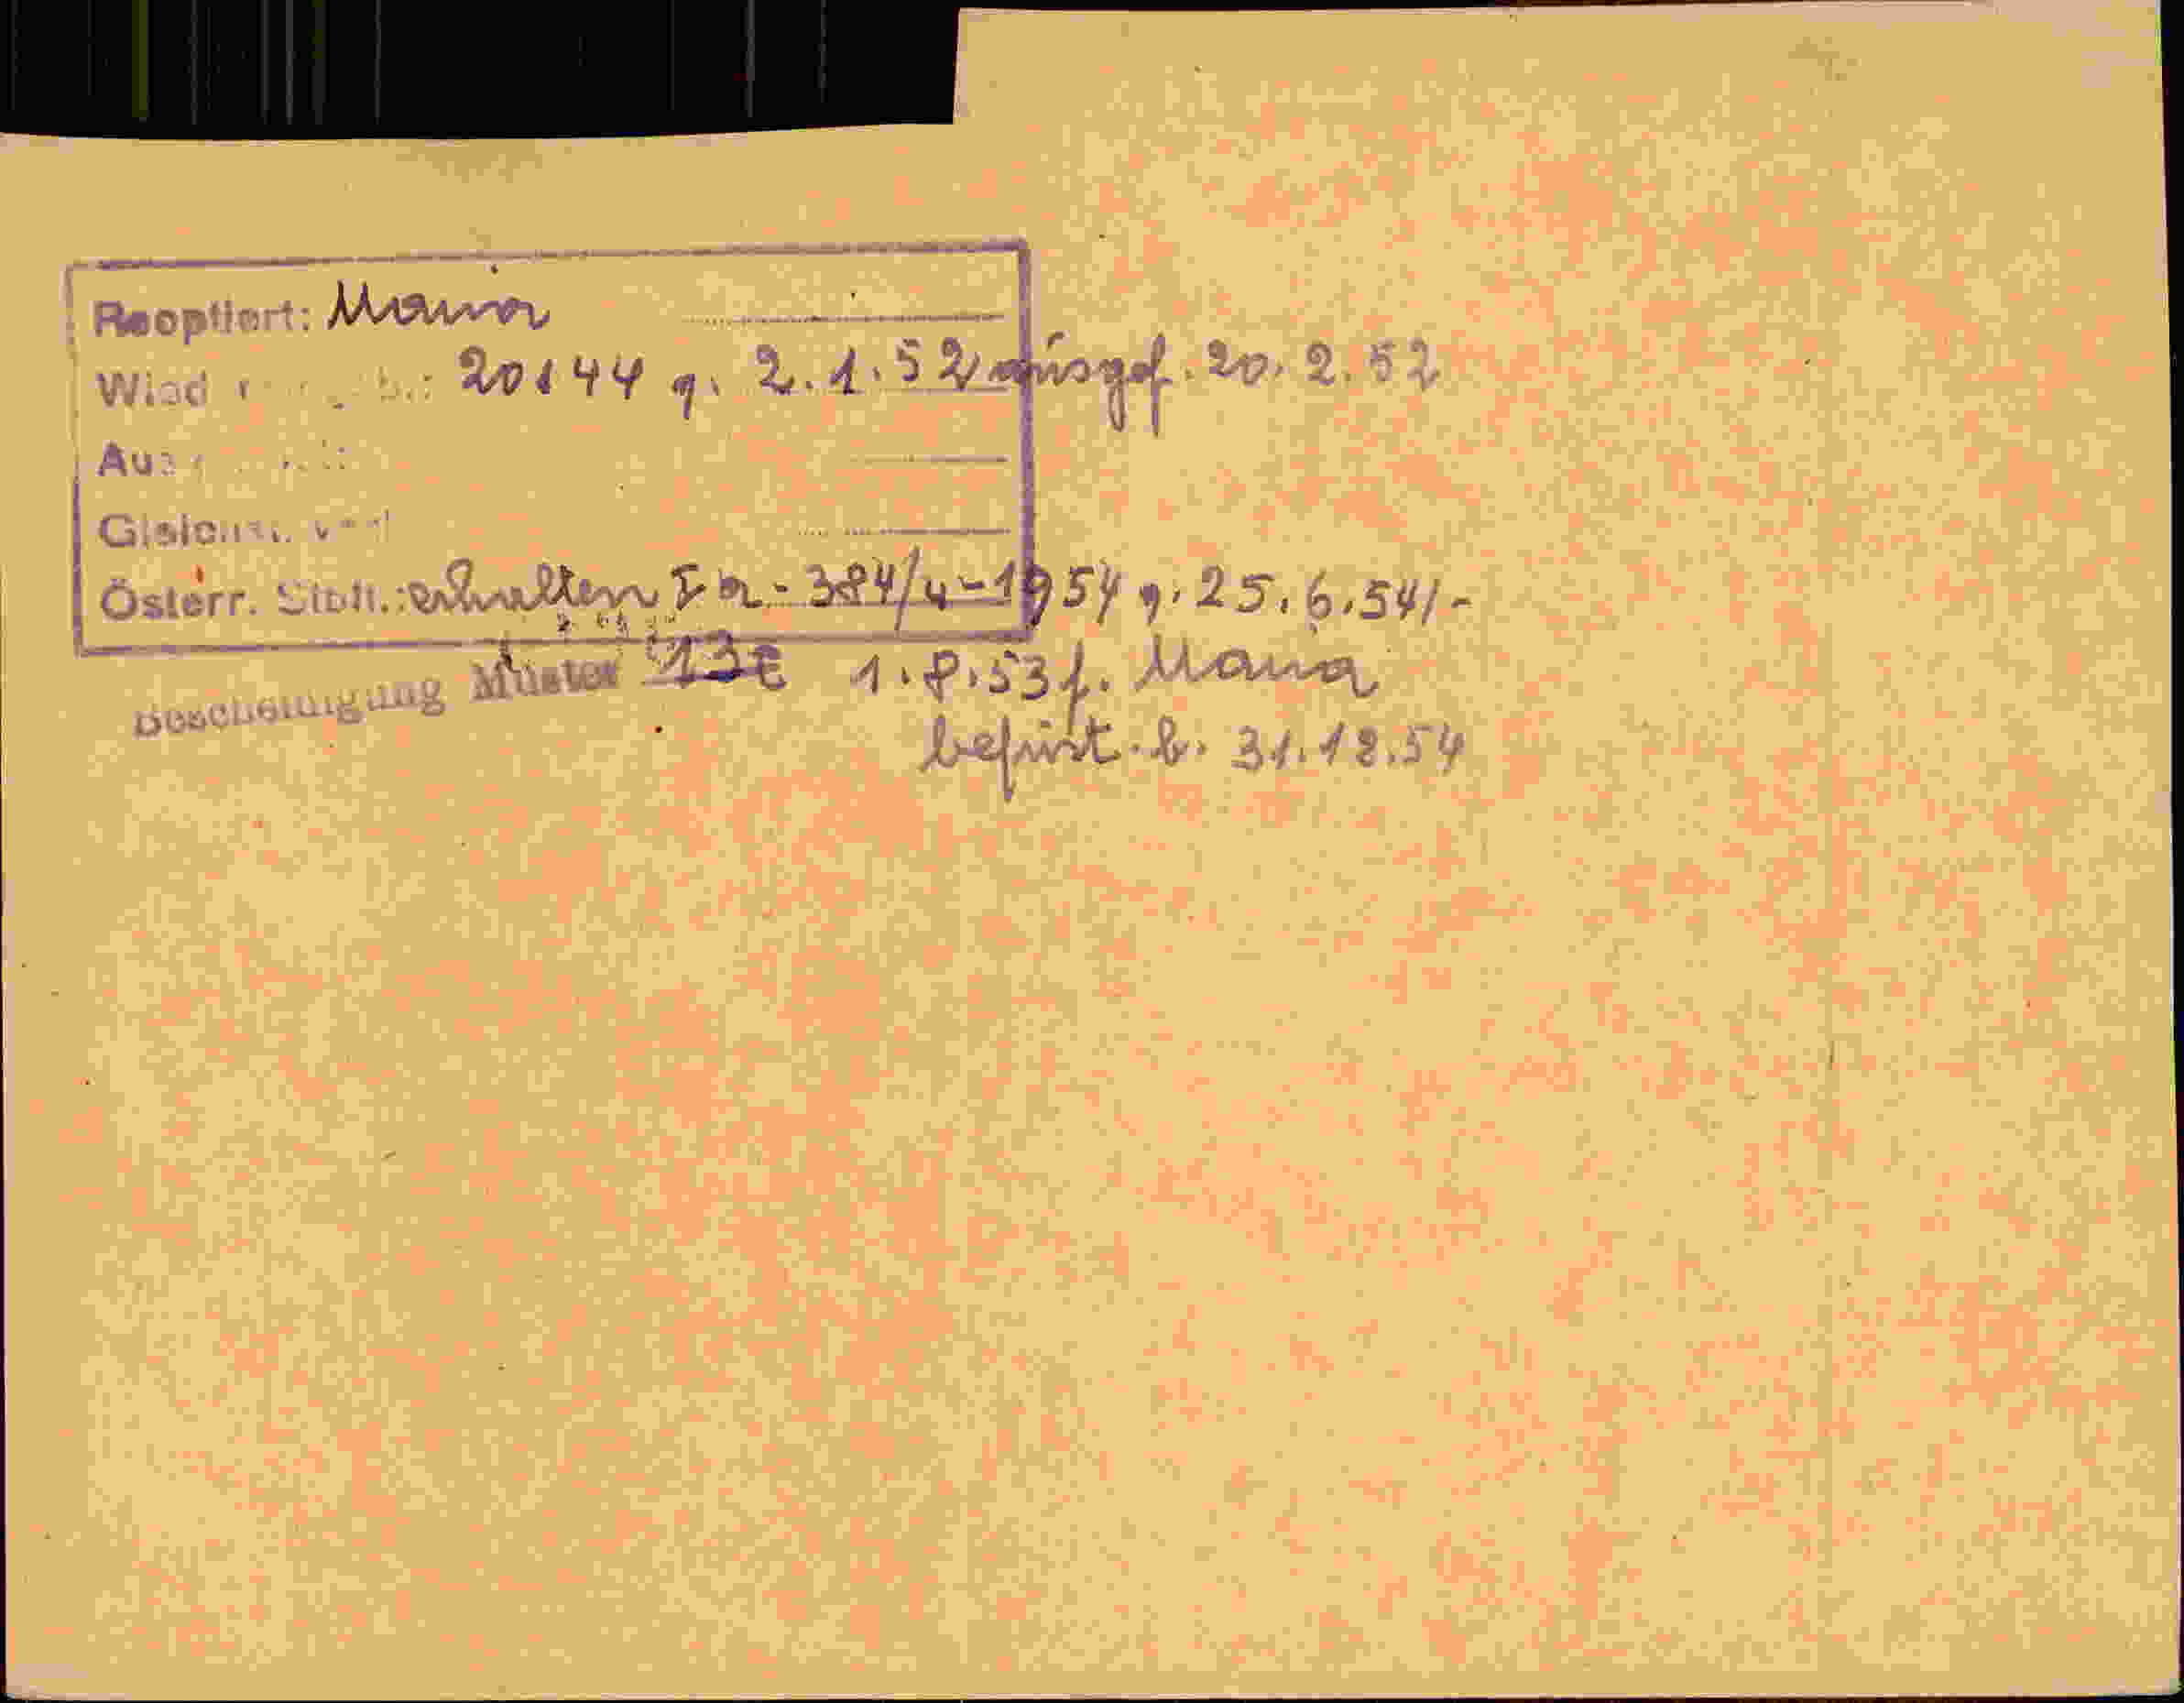 Reoptiert: Maria
20144 g. 2.1.52 ausgef. 20.2.52
Österr. Stbü.: erhalten I a - 384/4-1954 g. 25.6.54/-
Bescheinigung Muster 13E 1.8.53 f. Maria
befrist. b. 31.12.54